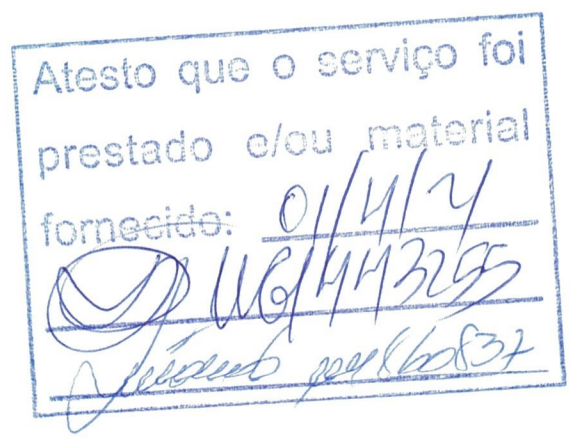 Atesto que o serviço foi
prestado e/ou material
fornecido: 01/4/
443255
860837